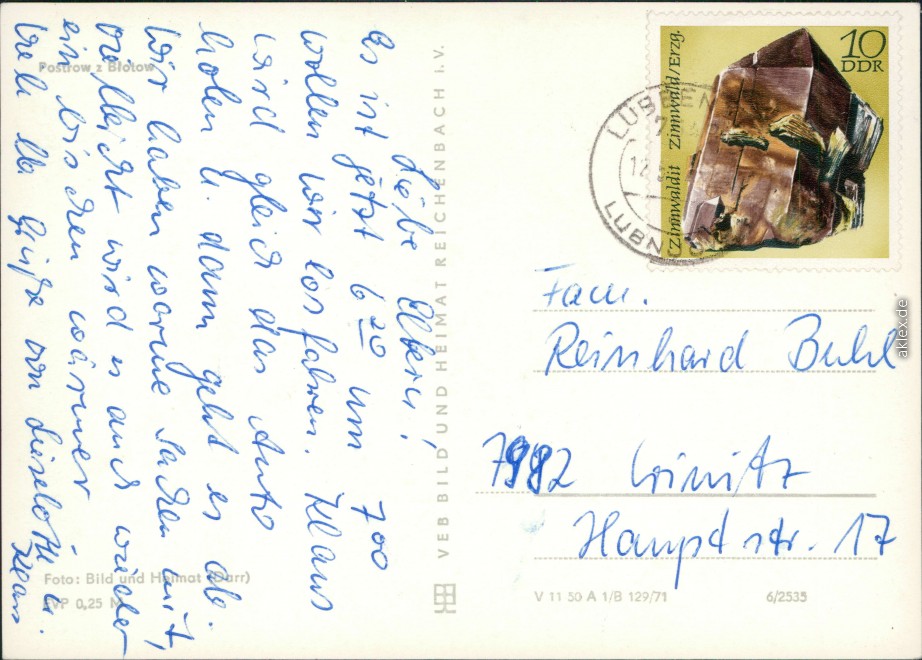 Liebe Eltern!
Es ist jetzt 6 20 um 7 00
wollen wir losfahren. Klaus
wird gleich das Auto
holen u. dann geht es ab.
Wir haben warme Sachen mit,
vielleicht wird es auch wieder
ein bischen wärmer
viele lb Grüße von Liselotte u.
Klaus
Postrow z Błotow
Foto: Bild und Heimat (Darr)
EVP 0,25 M
VEB BILD UND HEIMAT REICHENBACH I. V.
10
DDR
Zinnwaldit Zinnwald/Erzg.
LÜBBEN
LUBN
Fam.
Reinhard Buhl
7982 Crinitz
Hauptstr. 17
V 11 50 A 1/B 129/71
6/2535
aklex.de